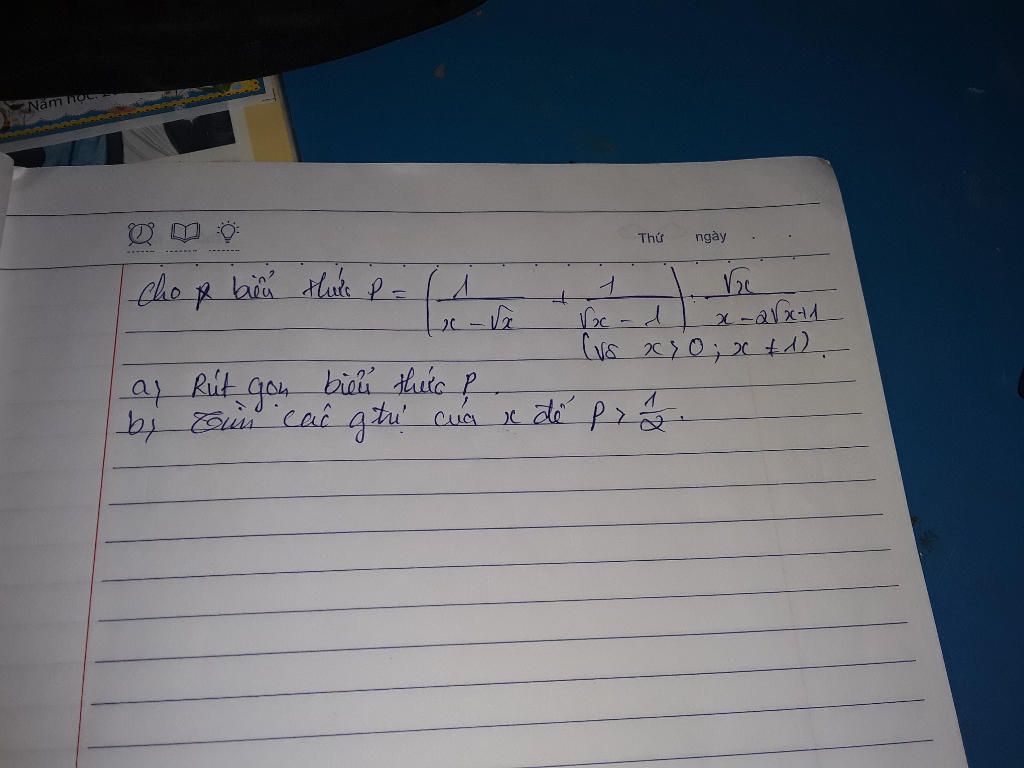 Năm học: 2
Thứ ngày . .
Cho biểu thức P = (1/(x - √x) + 1/(√x - 1)) : √x/(x - 2√x + 1)
(vs x > 0 ; x ≠ 1).
a, Rút gọn biểu thức P.
b, Tìm các gtrị của x để P > 1/2.